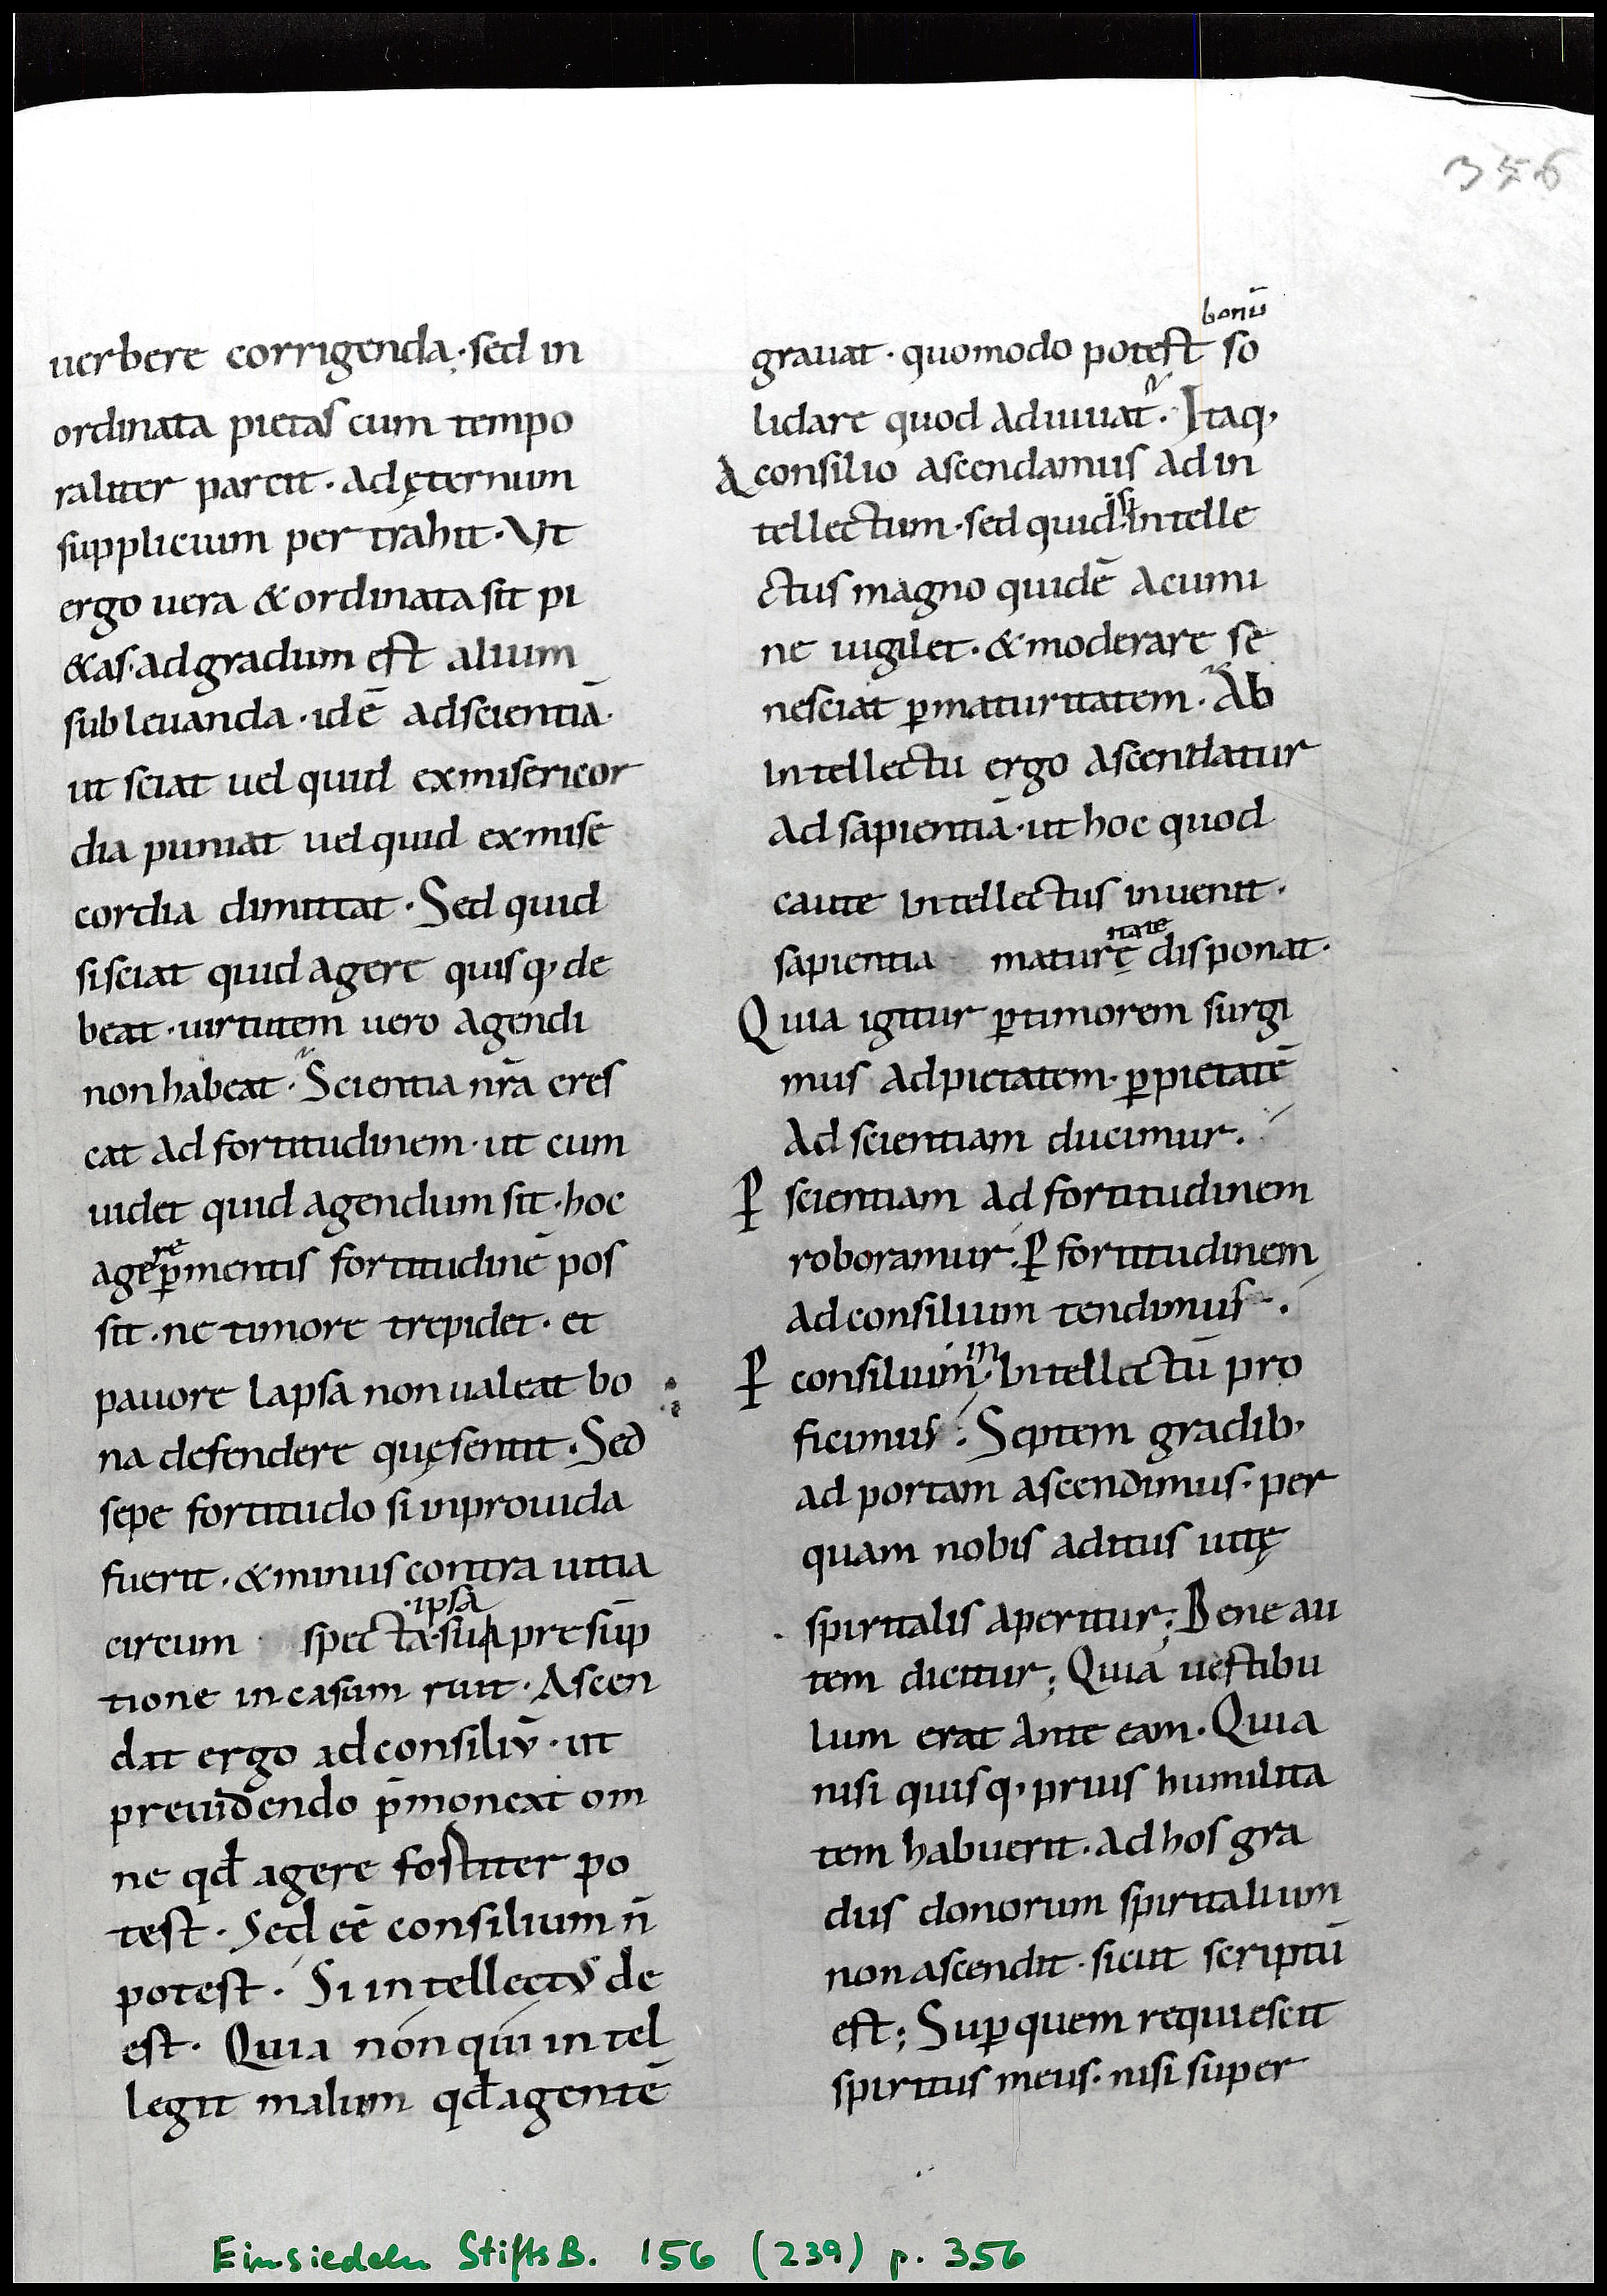 356
uerbere corrigenda; sed in
ordinata pietas cum tempo
raliter parcit· ad ęternum
supplicium per trahit· Ut
ergo uera & ordinata sit pi
&as· ad gradum est alium
subleuanda· idē ad scientiā·
ut sciat uel quid ex misericor
dia puniat uel quid ex mise
cordia dimittat· Sed quid
si sciat quid agere quisq; de
beat· uirtutem uero agendi
non habeat· Scientia nr̄a cres
cat ad fortitudinem· ut cum
uidet quid agendum sit· hoc
re
age ꝑ mentis fortitudinē pos
sit· ne timore trepidet· et
pauore lapsa non ualeat bo
na defendere quę sentit· Sed
sepe fortitudo si inprouida
fuerit· & minus contra uitia
·ipsa
circum specta· sua presūp
tione in casum ruit· Ascen
dat ergo ad consiliū· ut
preuidendo p̄moneat om
ne qđ agere fortiter po
test· Sed eē consilium n̄
potest· Si intellectus de
est· Quia non qui intel
legit malum qđ agentē
bonū
grauat· quomodo potest so
lidare quod adiuuat· Itaq;
A consilio ascendamus ad in
si
tellectum· sed quid intelle
ctus magno quidē acumi
ne uigilet· & moderare se
nesciat ꝑ maturitatem· Ab
intellectu ergo ascendatur
ad sapientiā· ut hoc quod
caute intellectus inuenit·
itate
sapientia maturę disponat·
Quia igitur ꝑ timorem surgi
mus ad pietatem· ꝑ pietatē
ad scientiam ducimur·
Ꝑ scientiam ad fortitudinem
roboramur· Ꝑ fortitudinem
ad consilium tendimus·
in
Ꝑ consilium· intellectū pro
ficimus· Septem gradib;
ad portam ascendimus· per
quam nobis aditus uitę
spiritalis aperitur; Bene au
tem dicitur; Quia uestibu
lum erat ante eam· Quia
nisi quisq; prius humilita
tem habuerit· ad hos gra
dus donorum spiritalium
non ascendit· sicut scriptū
est; Suꝑ quem requiescit
spiritus meus· nisi super
Einsiedeln StiftsB. 156 (239) p. 356